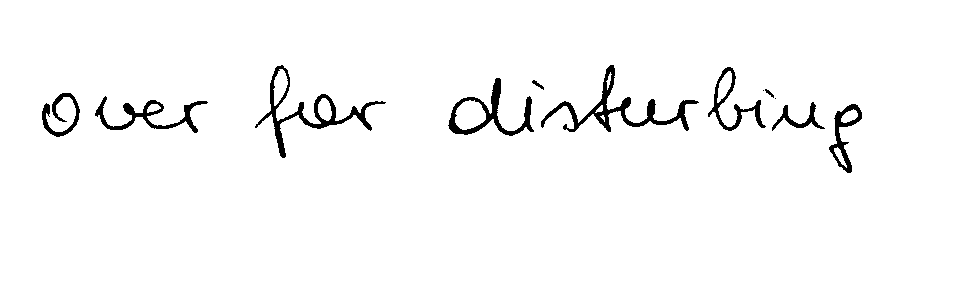 over for disturbing